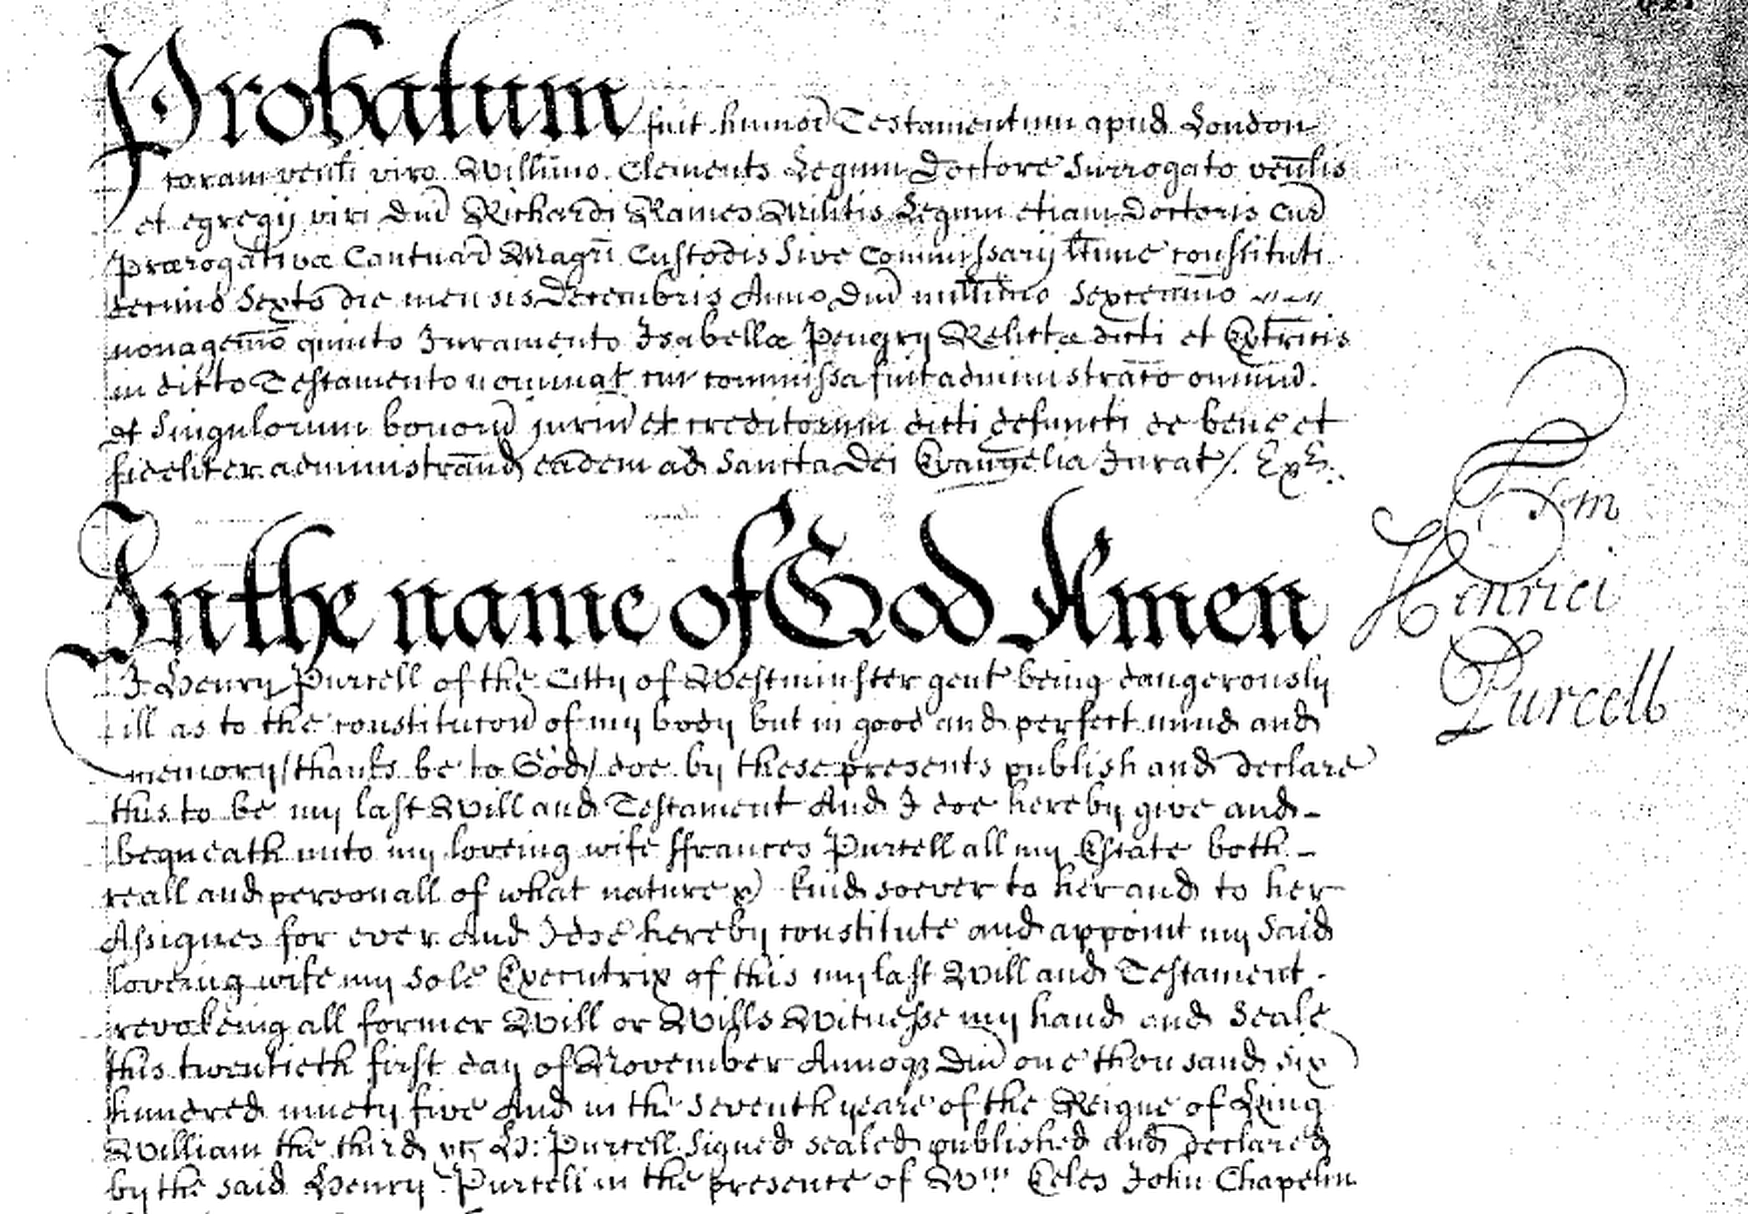 Probatum fuit humoi Testamentum apud London
coram venli viro Willimo Clements Legum Doctore Surrogato venlis
et egregij viri Dni Richardi Raines Militis Legum etiam Doctoris Cur
Prærogativæ Cantuar Magri Custodis Sive Commissarij ltime constituti
decimo Sexto die mensis Decembris Anno Dni millimo Sexcenmo
nonagemo quinto Juramento Isabellæ Pengry Relictæ dicti et Extricis
in dicto Testamento nominat cui commissa fuit administraco omniu
et Singulorum bonoru juriu et creditorum dicti defuncti de bene et
fideliter administrand eadem ad Sancta Dei Evangelia Jurat /. Exr.
Tem
Henrici
Purcell
In the name of God Amen
I Henry Purcell of the Citty of Westminster gent being dangerously
ill as to the constitucon of my body but in good and perfect mind and
memory (thanks be to God) doe by these presents publish and declare
this to be my last Will and Testament And I doe hereby give and
bequeath unto my loveing wife ffrances Purcell all my Estate both
reall and personall of what nature & kind soever to her and to her
Assignes for ever And I doe hereby constitute and appoint my Said
loveing wife my sole Executrix of this my last Will and Testament
revokeing all former Will or Wills Witnesse my hand and Seale
this twentieth first day of November Annoq Dni one thousand six
hundred ninety five And in the seventh yeare of the Reigne of King
William the third &c H: Purcell Signed sealed published and declared
by the said Henry Purcell in the presence of Wm Eeles John Chapelin